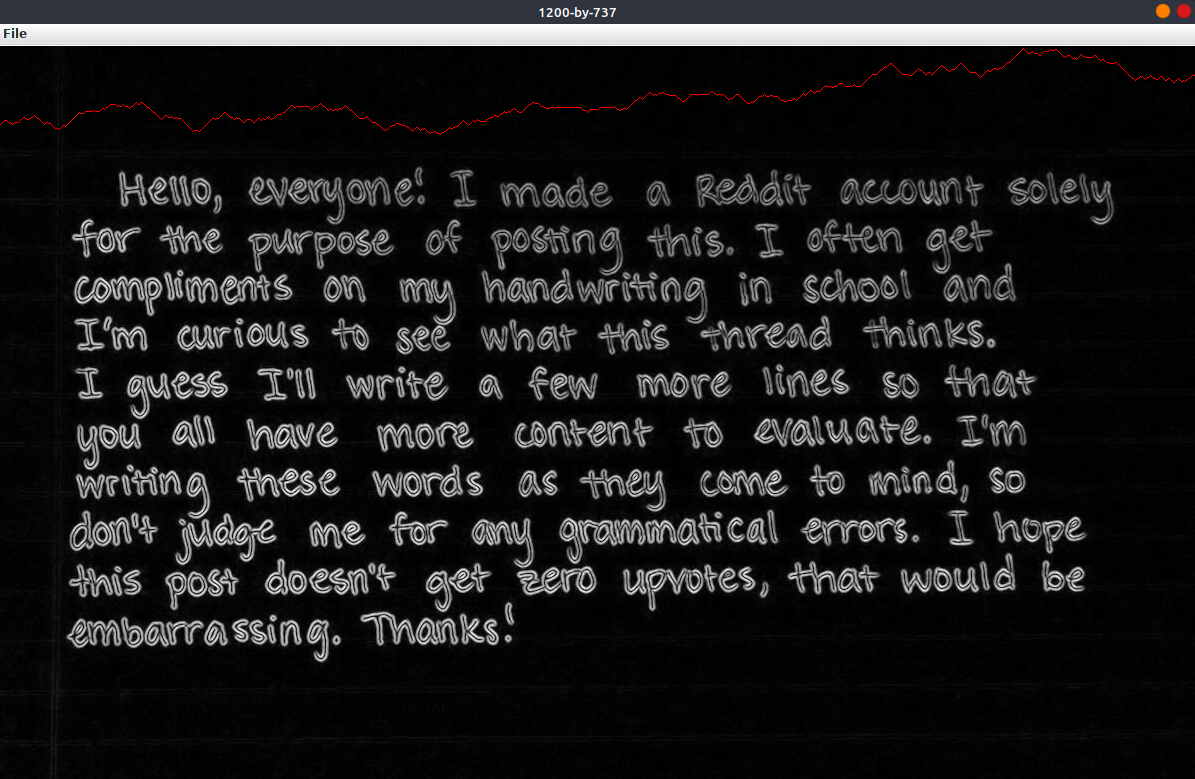 1200-by-737
File
Hello, everyone! I made a Reddit account solely
for the purpose of posting this. I often get
compliments on my handwriting in school and
I'm curious to see what this thread thinks.
I guess I'll write a few more lines so that
you all have more content to evaluate. I'm
writing these words as they come to mind, so
don't judge me for any grammatical errors. I hope
this post doesn't get zero upvotes, that would be
embarrassing. Thanks!